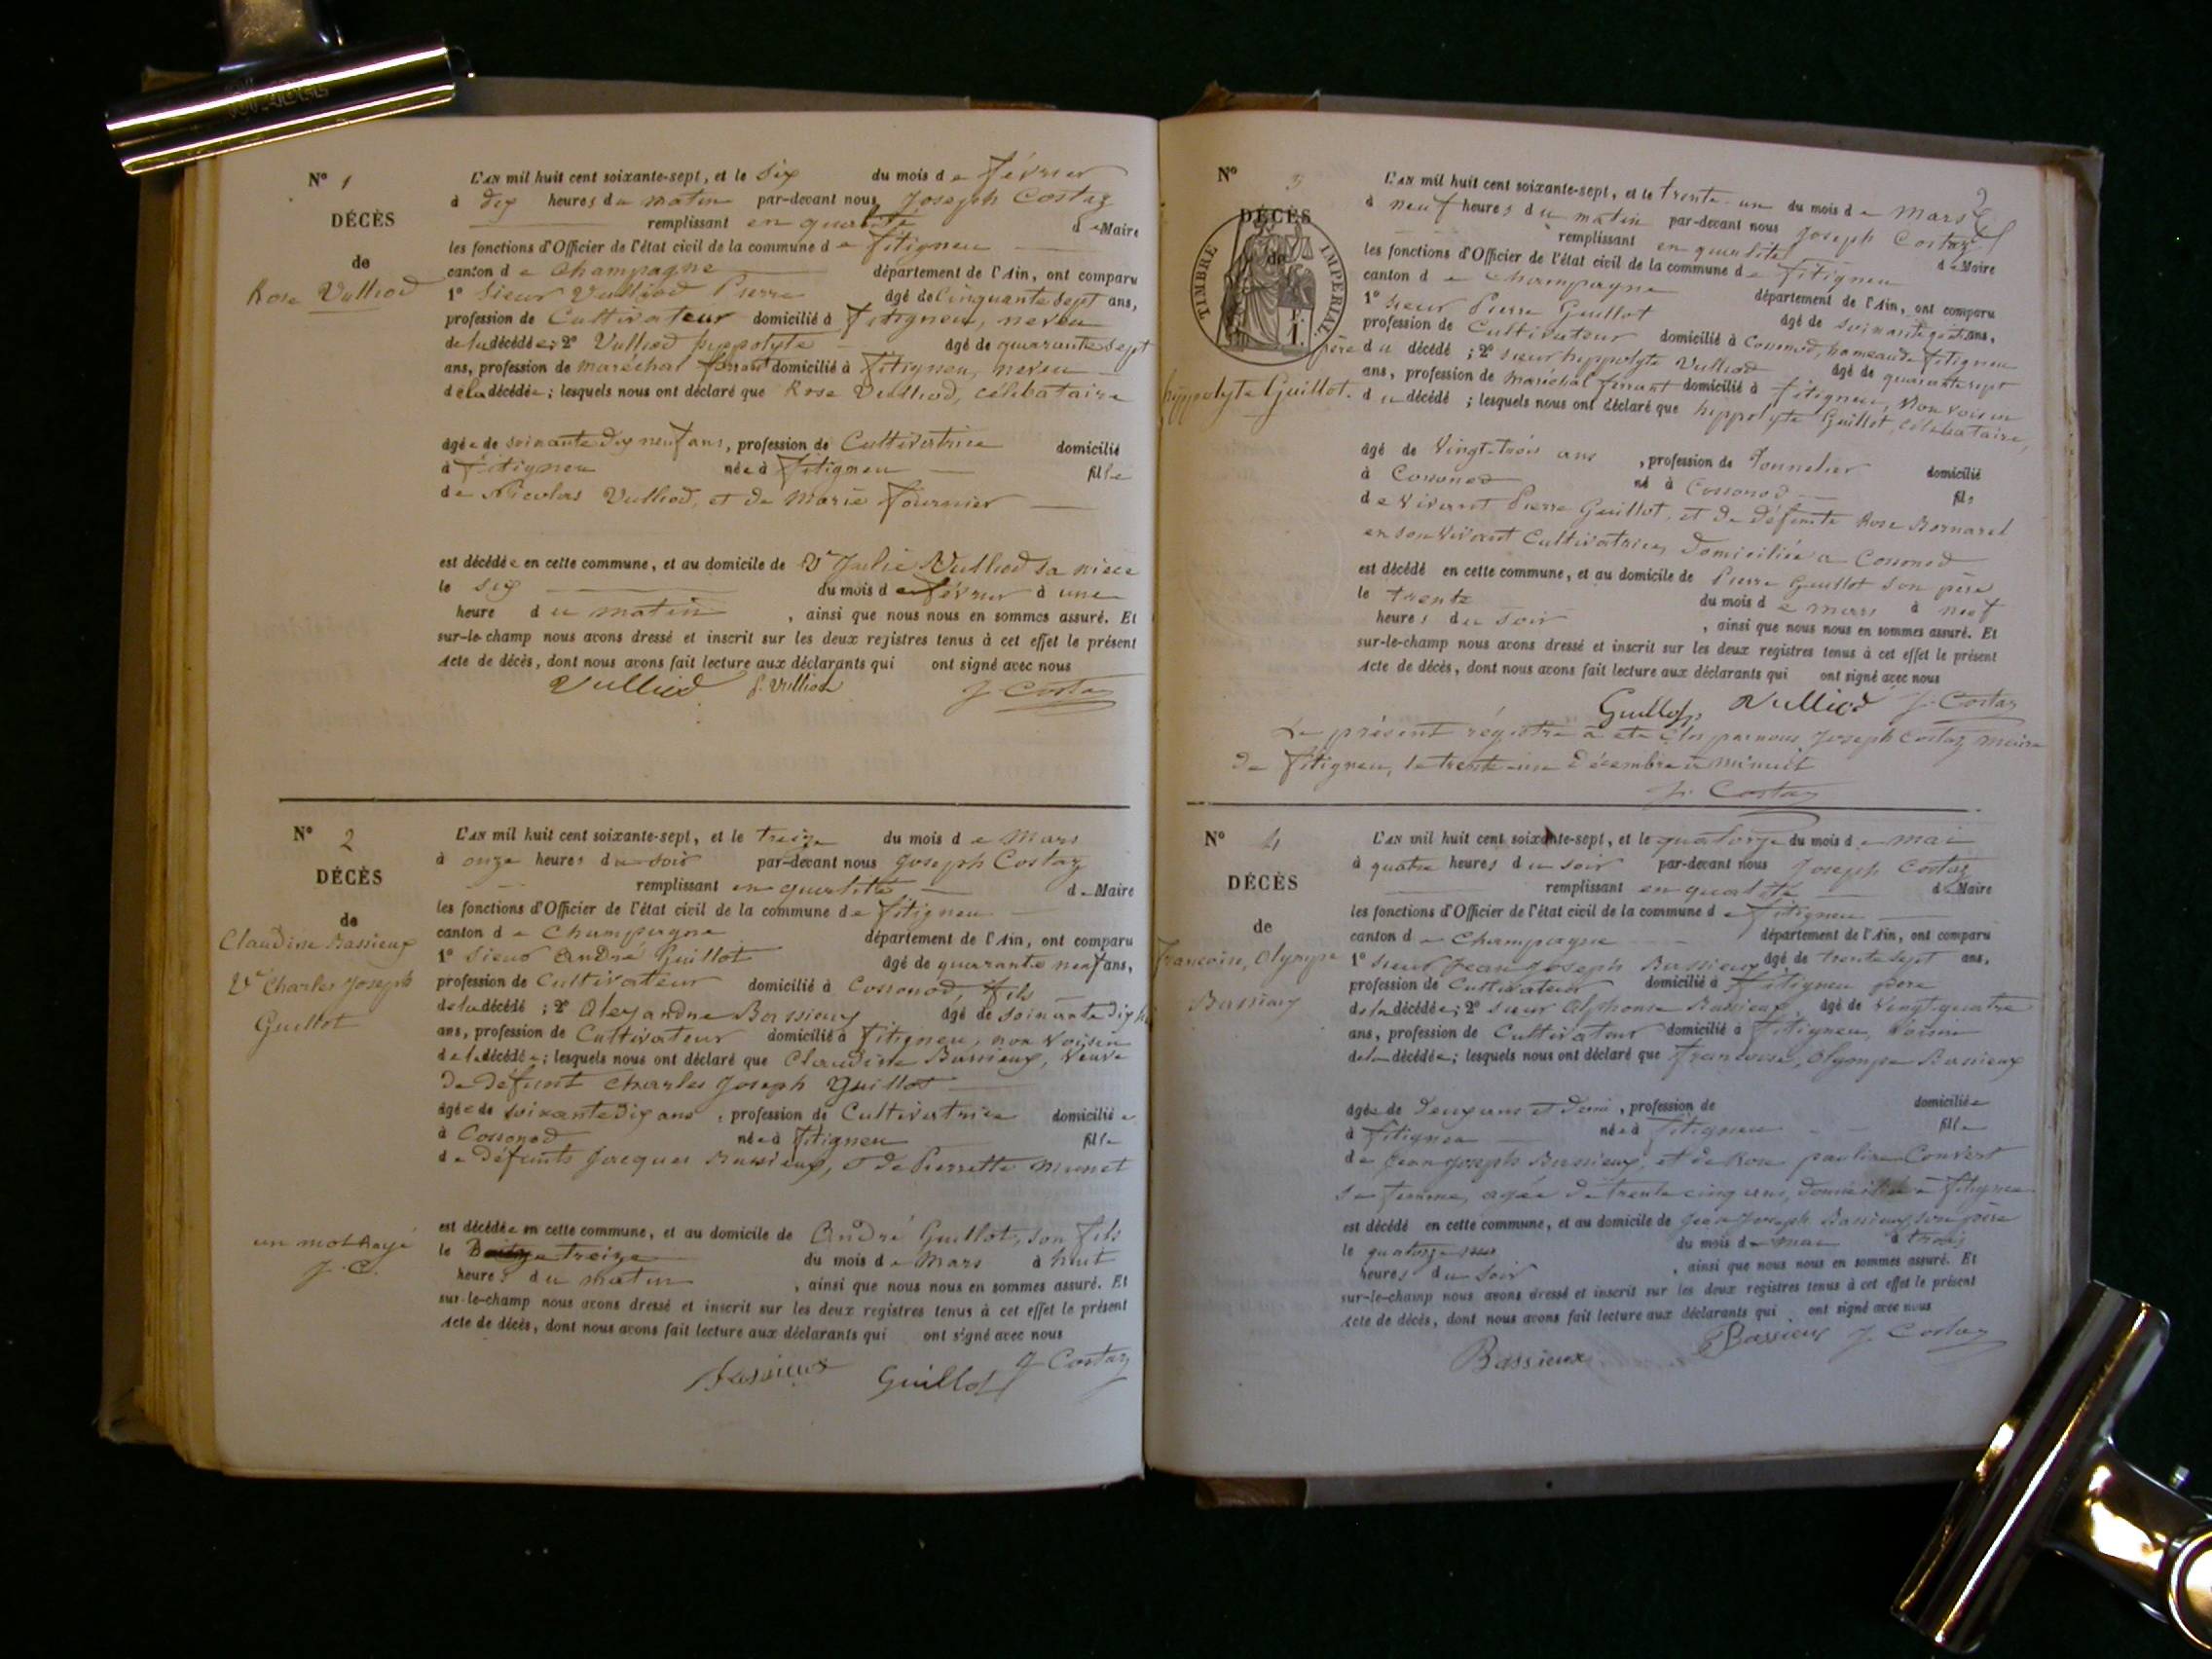 N° 1
DÉCÈS
de
Rose Vulliod
L'AN mil huit cent soixante-sept, et le six du mois de février
à dix heures du matin par-devant nous Joseph Costaz
remplissant en qualité de Maire
les fonctions d'Officier de l'état civil de la commune de fitigneu
canton de Champagne département de l'Ain, ont comparu
1° Sieur Vulliod Pierre âgé de Cinquante sept ans,
profession de Cultivateur domicilié à fitigneu, neveu
de la décédée; 2° Vulliod hippolyte âgé de quarante sept
ans, profession de maréchal ferrant domicilié à fitigneu, neveu
de la décédée; lesquels nous ont déclaré que Rose Vulliod, célibataire
âgée de soixante dix neuf ans, profession de Cultivatrice domicilié
à fitigneu née à fitigneu fille
de Nicolas Vulliod, et de Marie fournier
est décédée en cette commune, et au domicile de Julie Vulliod sa nièce
le six du mois de février à une
heure du matin, ainsi que nous nous en sommes assuré. Et
sur-le-champ nous avons dressé et inscrit sur les deux registres tenus à cet effet le présent
Acte de décès, dont nous avons fait lecture aux déclarants qui ont signé avec nous
Vulliod P. Vulliod J. Costaz
N° 2
DÉCÈS
de
Claudine Bassieux
Ve Charles Joseph
Guillot
L'AN mil huit cent soixante-sept, et le treize du mois de Mars
à onze heures du soir par-devant nous Joseph Costaz
remplissant en qualité de Maire
les fonctions d'Officier de l'état civil de la commune de fitigneu
canton de Champagne département de l'Ain, ont comparu
1° Sieur André Guillot âgé de quarante neuf ans,
profession de Cultivateur domicilié à Cossonod, fils
de la décédé; 2° Alexandre Bassieux âgé de soixante dix
ans, profession de Cultivateur domicilié à fitigneu, non Voisin
de la décédée; lesquels nous ont déclaré que Claudine Bassieux, Veuve
de défunt Charles Joseph Guillot
âgée de soixante dix ans, profession de Cultivatrice domiciliée
à Cossonod née à fitigneu fille
de défunts Jacques Bassieux, & de Pierrette Monet
un mot rayé
J. C.
est décédée en cette commune, et au domicile de André Guillot, son fils
le treize du mois de Mars à huit
heures du matin, ainsi que nous nous en sommes assuré. Et
sur-le-champ nous avons dressé et inscrit sur les deux registres tenus à cet effet le présent
Acte de décès, dont nous avons fait lecture aux déclarants qui ont signé avec nous
Bassieux Guillot J. Costaz
N° 3
DÉCÈS
de
TIMBRE IMPERIAL
hippolyte Guillot.
L'AN mil huit cent soixante-sept, et le trente-un du mois de Mars
à neuf heures du matin par-devant nous Joseph Costaz
remplissant en qualité de Maire
les fonctions d'Officier de l'état civil de la commune de fitigneu
canton de Champagne département de l'Ain, ont comparu
1° sieur Pierre Guillot âgé de ans,
profession de Cultivateur domicilié à Cossonod, hameau de fitigneu
père du décédé; 2° sieur hippolyte Vulliod âgé de quarante sept
ans, profession de Maréchal ferrant domicilié à fitigneu, Non voisin
du décédé; lesquels nous ont déclaré que hippolyte Guillot, célibataire,
âgé de Vingt-trois ans, profession de Tonnelier domicilié
à Cossonod né à Cossonod fils
de Vivant Pierre Guillot, et de défunte Rose Bornarel
en son vivant Cultivatrice, Domiciliée à Cossonod
est décédé en cette commune, et au domicile de Pierre Guillot son père
le trente du mois de mars à neuf
heures du soir, ainsi que nous nous en sommes assuré. Et
sur-le-champ nous avons dressé et inscrit sur les deux registres tenus à cet effet le présent
Acte de décès, dont nous avons fait lecture aux déclarants qui ont signé avec nous
Guillot, Vulliod J. Costaz
Le présent régistre a été clos par nous Joseph Costaz maire
de fitigneu, le trente-un Décembre à minuit
J. Costaz
N° 4
DÉCÈS
de
francoise, Olympe
Bassieux
L'AN mil huit cent soixante-sept, et le quatorze du mois de mai
à quatre heures du soir par-devant nous Joseph Costaz
remplissant en qualité de Maire
les fonctions d'Officier de l'état civil de la commune de fitigneu
canton de Champagne département de l'Ain, ont comparu
1° sieur Jean Joseph Bassieux âgé de trente sept ans,
profession de Cultivateur domicilié à fitigneu père
de la décédée; 2° sieur Alphonse Bassieux âgé de Vingt-quatre
ans, profession de Cultivateur domicilié à fitigneu, Voisin
de la décédée; lesquels nous ont déclaré que francoise, Olympe Bassieux
âgée de deux ans et demi, profession de domiciliée
à fitigneu née à fitigneu fille
de Jean Joseph Bassieux, et de Rose pauline Convert
sa femme, agée de trente cinq ans, domiciliée à fitigneu
est décédé en cette commune, et au domicile de Jean Joseph Bassieux son père
le quatorze du mois de mai à trois
heures du soir, ainsi que nous nous en sommes assuré. Et
sur-le-champ nous avons dressé et inscrit sur les deux registres tenus à cet effet le présent
Acte de décès, dont nous avons fait lecture aux déclarants qui ont signé avec nous
Bassieux Bassieux J. Costaz